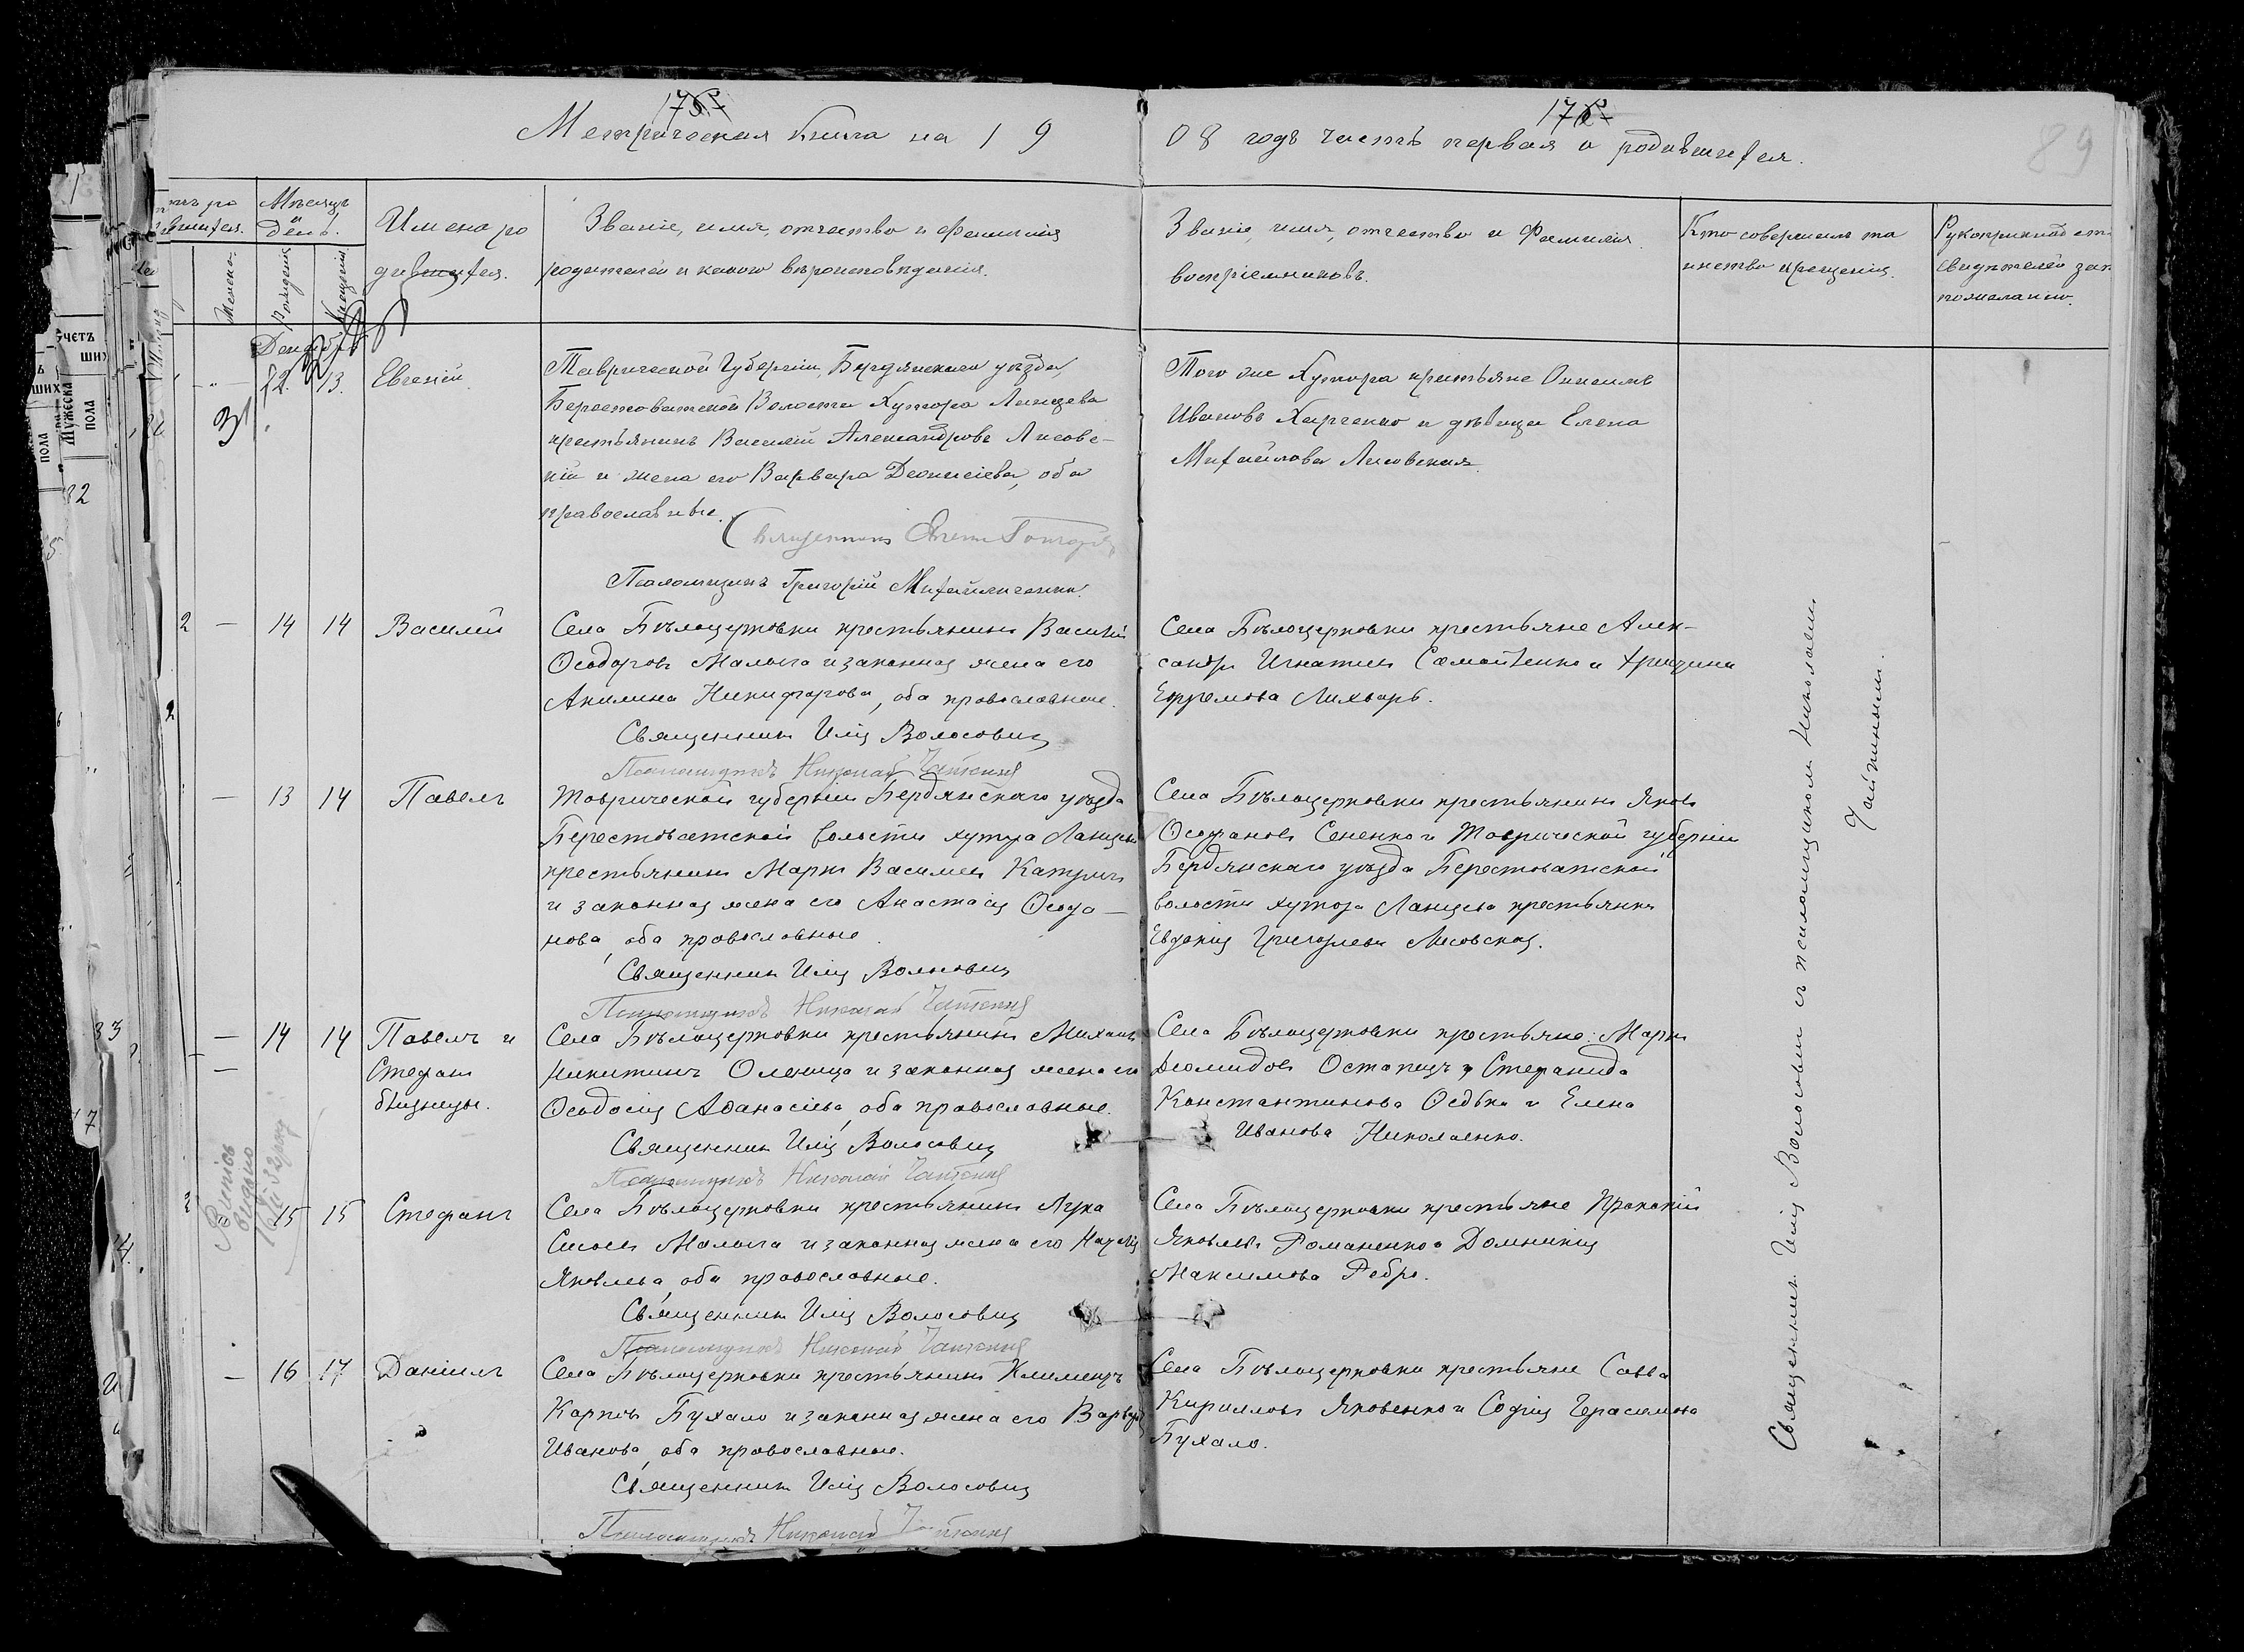 Метрическая книга на 19
08 годъ часть первая о родившихся.
89
Мѣсяцъ
и
день.
Женска.
Рожденія
Крещенія
Имена ро
дившихся.
Званіе, имя, отчество и фамилія
родителей и какого вѣроисповѣданія.
Званіе, имя, отчество и фамилія
воспріемниковъ.
Кто совершилъ та
инство крещенія.
Рукоприкладст
свидѣтелей зап
по желанію.
Декабрь
12. 13. Евгеній
Таврической Губерніи, Бердянскаго уѣзда,
Берестоватской Волости Хутора Ланцева
крестьянинъ Василій Александровъ Лисовс-
кій и жена его Варвара Деонисіева, оба
православные.
Священникъ
Псаломщикъ Григорій Михайличенко.
Того же Хутора крестьяне
Ивановъ Харченко и дѣвица Елена
Михайлова Лисовская.
2 — 14 14 Василій
Села Бѣлоцерковки крестьянинъ Василій
Ѳеодоровъ Малыга и законная жена его
Акилина Никифорова, оба православные.
Священникъ Илія Волосовичъ
Псаломщикъ Николай
Села Бѣлоцерковки крестьяне Алек-
сандръ Игнатьевъ Самойленко и Христина
Ефремова Лихварь.
— 13 14 Павелъ
Таврической губерніи Бердянскаго уѣзда
Берестоватской волости хутора Ланцева
крестьянинъ Маркъ Васильевъ
и законная жена его Анастасія
нова, оба православные.
Священникъ Илія Волосовичъ
Псаломщикъ Николай
Села Бѣлоцерковки крестьянинъ Яковъ
Сененко и Таврической губерніи
Бердянскаго уѣзда Берестоватской
волости хутора Ланцева крестьянка
Евдокія Григорьева Лисовская.
— 14 14 Павелъ и
Стефанъ
близнецы.
Села Бѣлоцерковки крестьянинъ Михаилъ
Никитинъ Оленица и законная жена его
Ѳеодосія Аѳанасіева, оба православные.
Священникъ Илія Волосовичъ
Псаломщикъ Николай
Села Бѣлоцерковки крестьяне: Маркъ
Діомидовъ Остапецъ, Стефанида
Константинова Ѳедька и Елена
Иванова Николаенко.
15 15 Стефанъ
Села Бѣлоцерковки крестьянинъ Лука
Сысоевъ Малыга и законная жена его Наталія
Яковлева, оба православные.
Священникъ Илія Волосовичъ
Псаломщикъ Николай
Села Бѣлоцерковки крестьяне Прокопій
Яковлевъ Романенко и Домникія
Максимова Ребро.
— 16 17 Даніилъ
Села Бѣлоцерковки крестьянинъ Климентъ
Карповъ Бухало и законная жена его Варвара
Иванова, оба православные.
Священникъ Илія Волосовичъ
Псаломщикъ Николай
Села Бѣлоцерковки крестьяне Савва
Кирилловъ Яковенко и Софія Герасимова
Бухало.
Священникъ Илія Волосовичъ съ псаломщикомъ Николаемъ